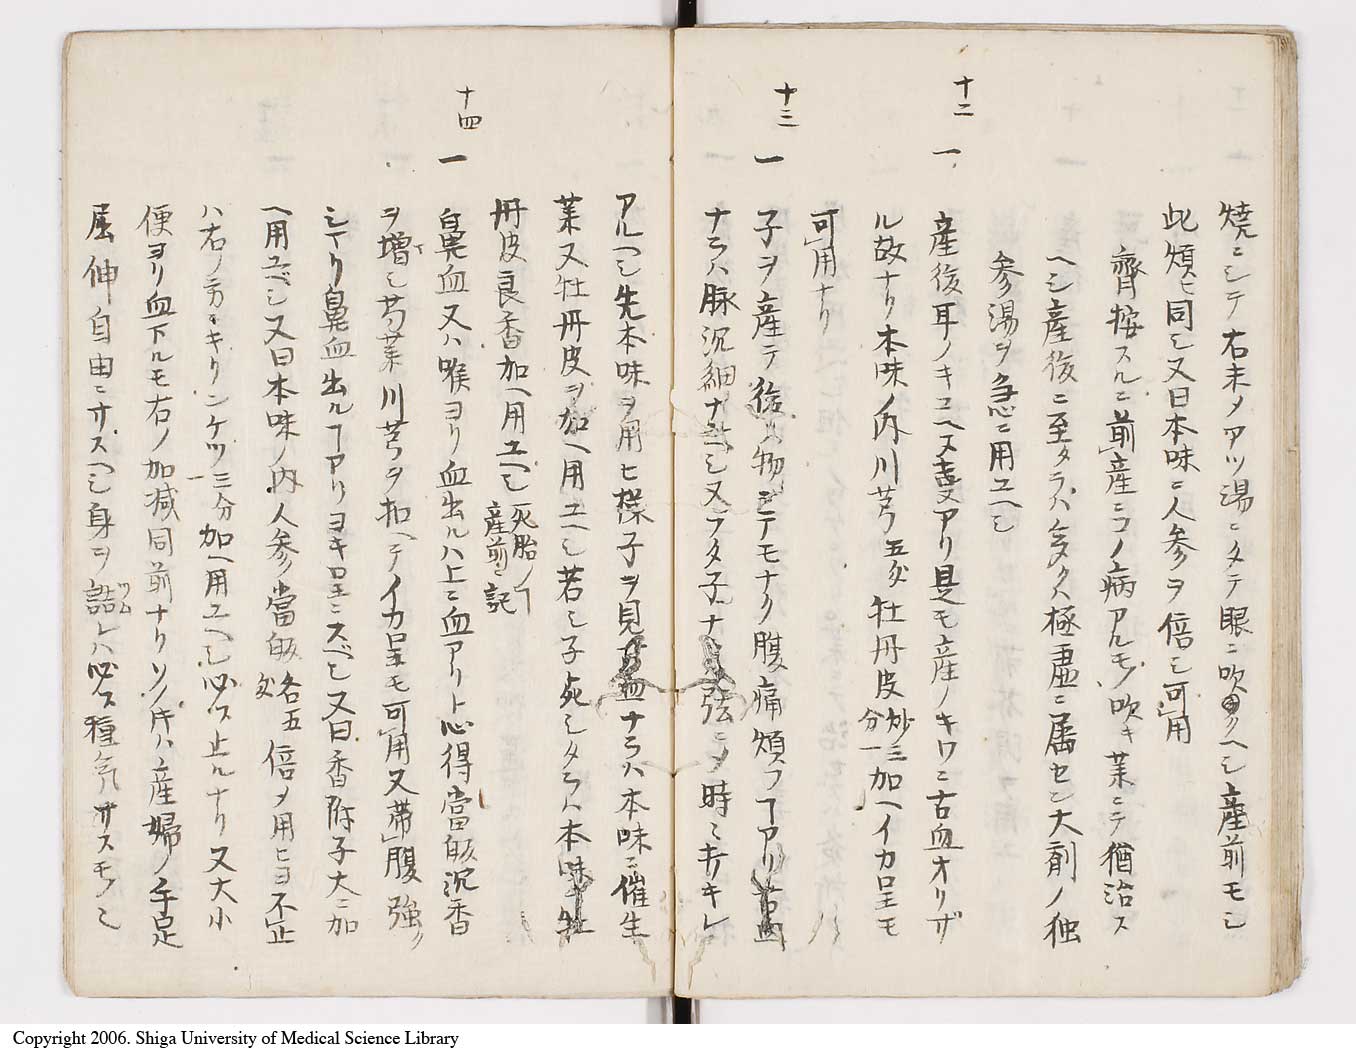 焼ニシテ右末メアツ湯ニタテ眼ニ吹クヘシ産前モシ
此煩ヒ同シ又曰本味ニ人参ヲ倍シ可用
齊按スルニ前産ニコノ病アルモノ吹キ茉ニテ猶治ス
ヘシ産後ニ至タラハ多クハ極虚ニ属セン大剤ノ独
参湯ヲ急ニ用ユヘシ
十二
一
産後耳ノキコヘヌ叓アリ是モ産ノキワニ古血オリザ
ル故ナリ本味ノ内川芎五分牡丹皮炒三分一加ヘイカ呈モ
可用ナリ
十三
一
子ヲ産テ後ハ物ニテモナク腹痛煩フヿアリ若血
ナラハ脉沉細ナルヘシ又フタ子ナ弦ニメ時ミキレ
アルヘシ先本味ヲ用ヒ様子ヲ見古血ナラハ本味ニ催生
茉又牡丹皮ヲ加ヘ用ユヘシ若シ子死シタラハ本味牡
丹皮良香加ヘ用ユヘシ死胎ノヿ産前ニ記
十四
一
鼻血又ハ喉ヨリ血出ルハ上ニ血アリト心得當皈沉香
ヲ増シ芍茉川芎ヲ加ヘテイカ呈モ可用又帯腹強ク
シマリ鼻血出ルヿアリヨキ呈ニスベシ又曰香附子大ニ加
ヘ用ユベシ又曰本味ノ内人参當皈各五分倍メ用ヒヨ不止
ハ右ノ方ニキリンケツ三分加ヘ用ユヘシ必ス止ルナリ又大小
便ヨリ血下ルモ右ノ加減同前ナリソノ片ハ産婦ノ手足
屈伸自由ニサスヘシ身ヲ詰レハ必ス種気サスモノシ
Copyright 2006. Shiga University of Medical Science Library